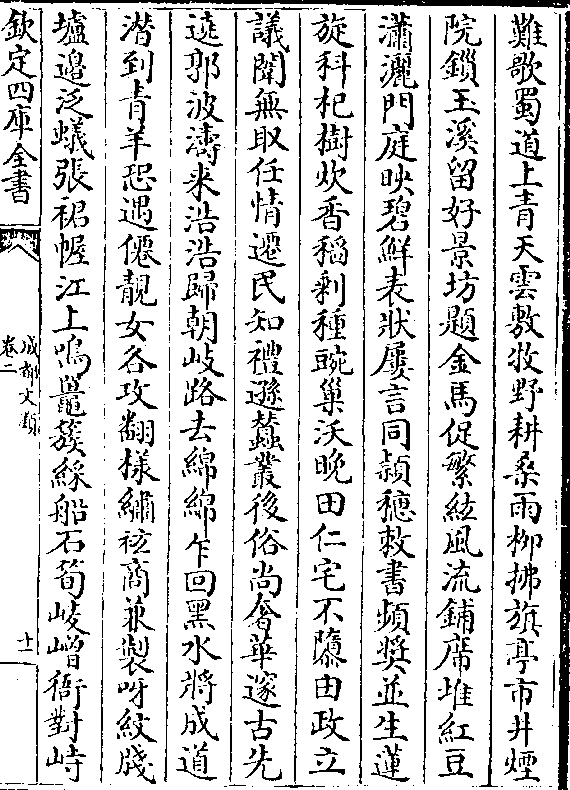 難歌蜀道上青天雲敷牧野耕桑雨柳拂旗亭市井煙
院鎖玉溪留好景坊題金馬促繁絃風流鋪席堆紅豆
瀟灑門庭映碧鮮表狀屢言同穎穗敕書頻獎並生蓮
旋科杞樹炊香稻剩種豌巢沃晚田仁宅不隳由政立
議闈無取任情遷民知禮遜蠶叢後俗尚奢華邃古先
遶郭波濤来浩浩歸朝岐路去綿綿乍回黑水將成道
潜到青羊恐遇僊靚女各攻翻様繡袨商兼製呀紋牋
壚邉泛蟻張裙幄江上鳴鼉簇綵船石筍崚嶒衙對峙
欽定四庫全書
成都文類
卷二
十一